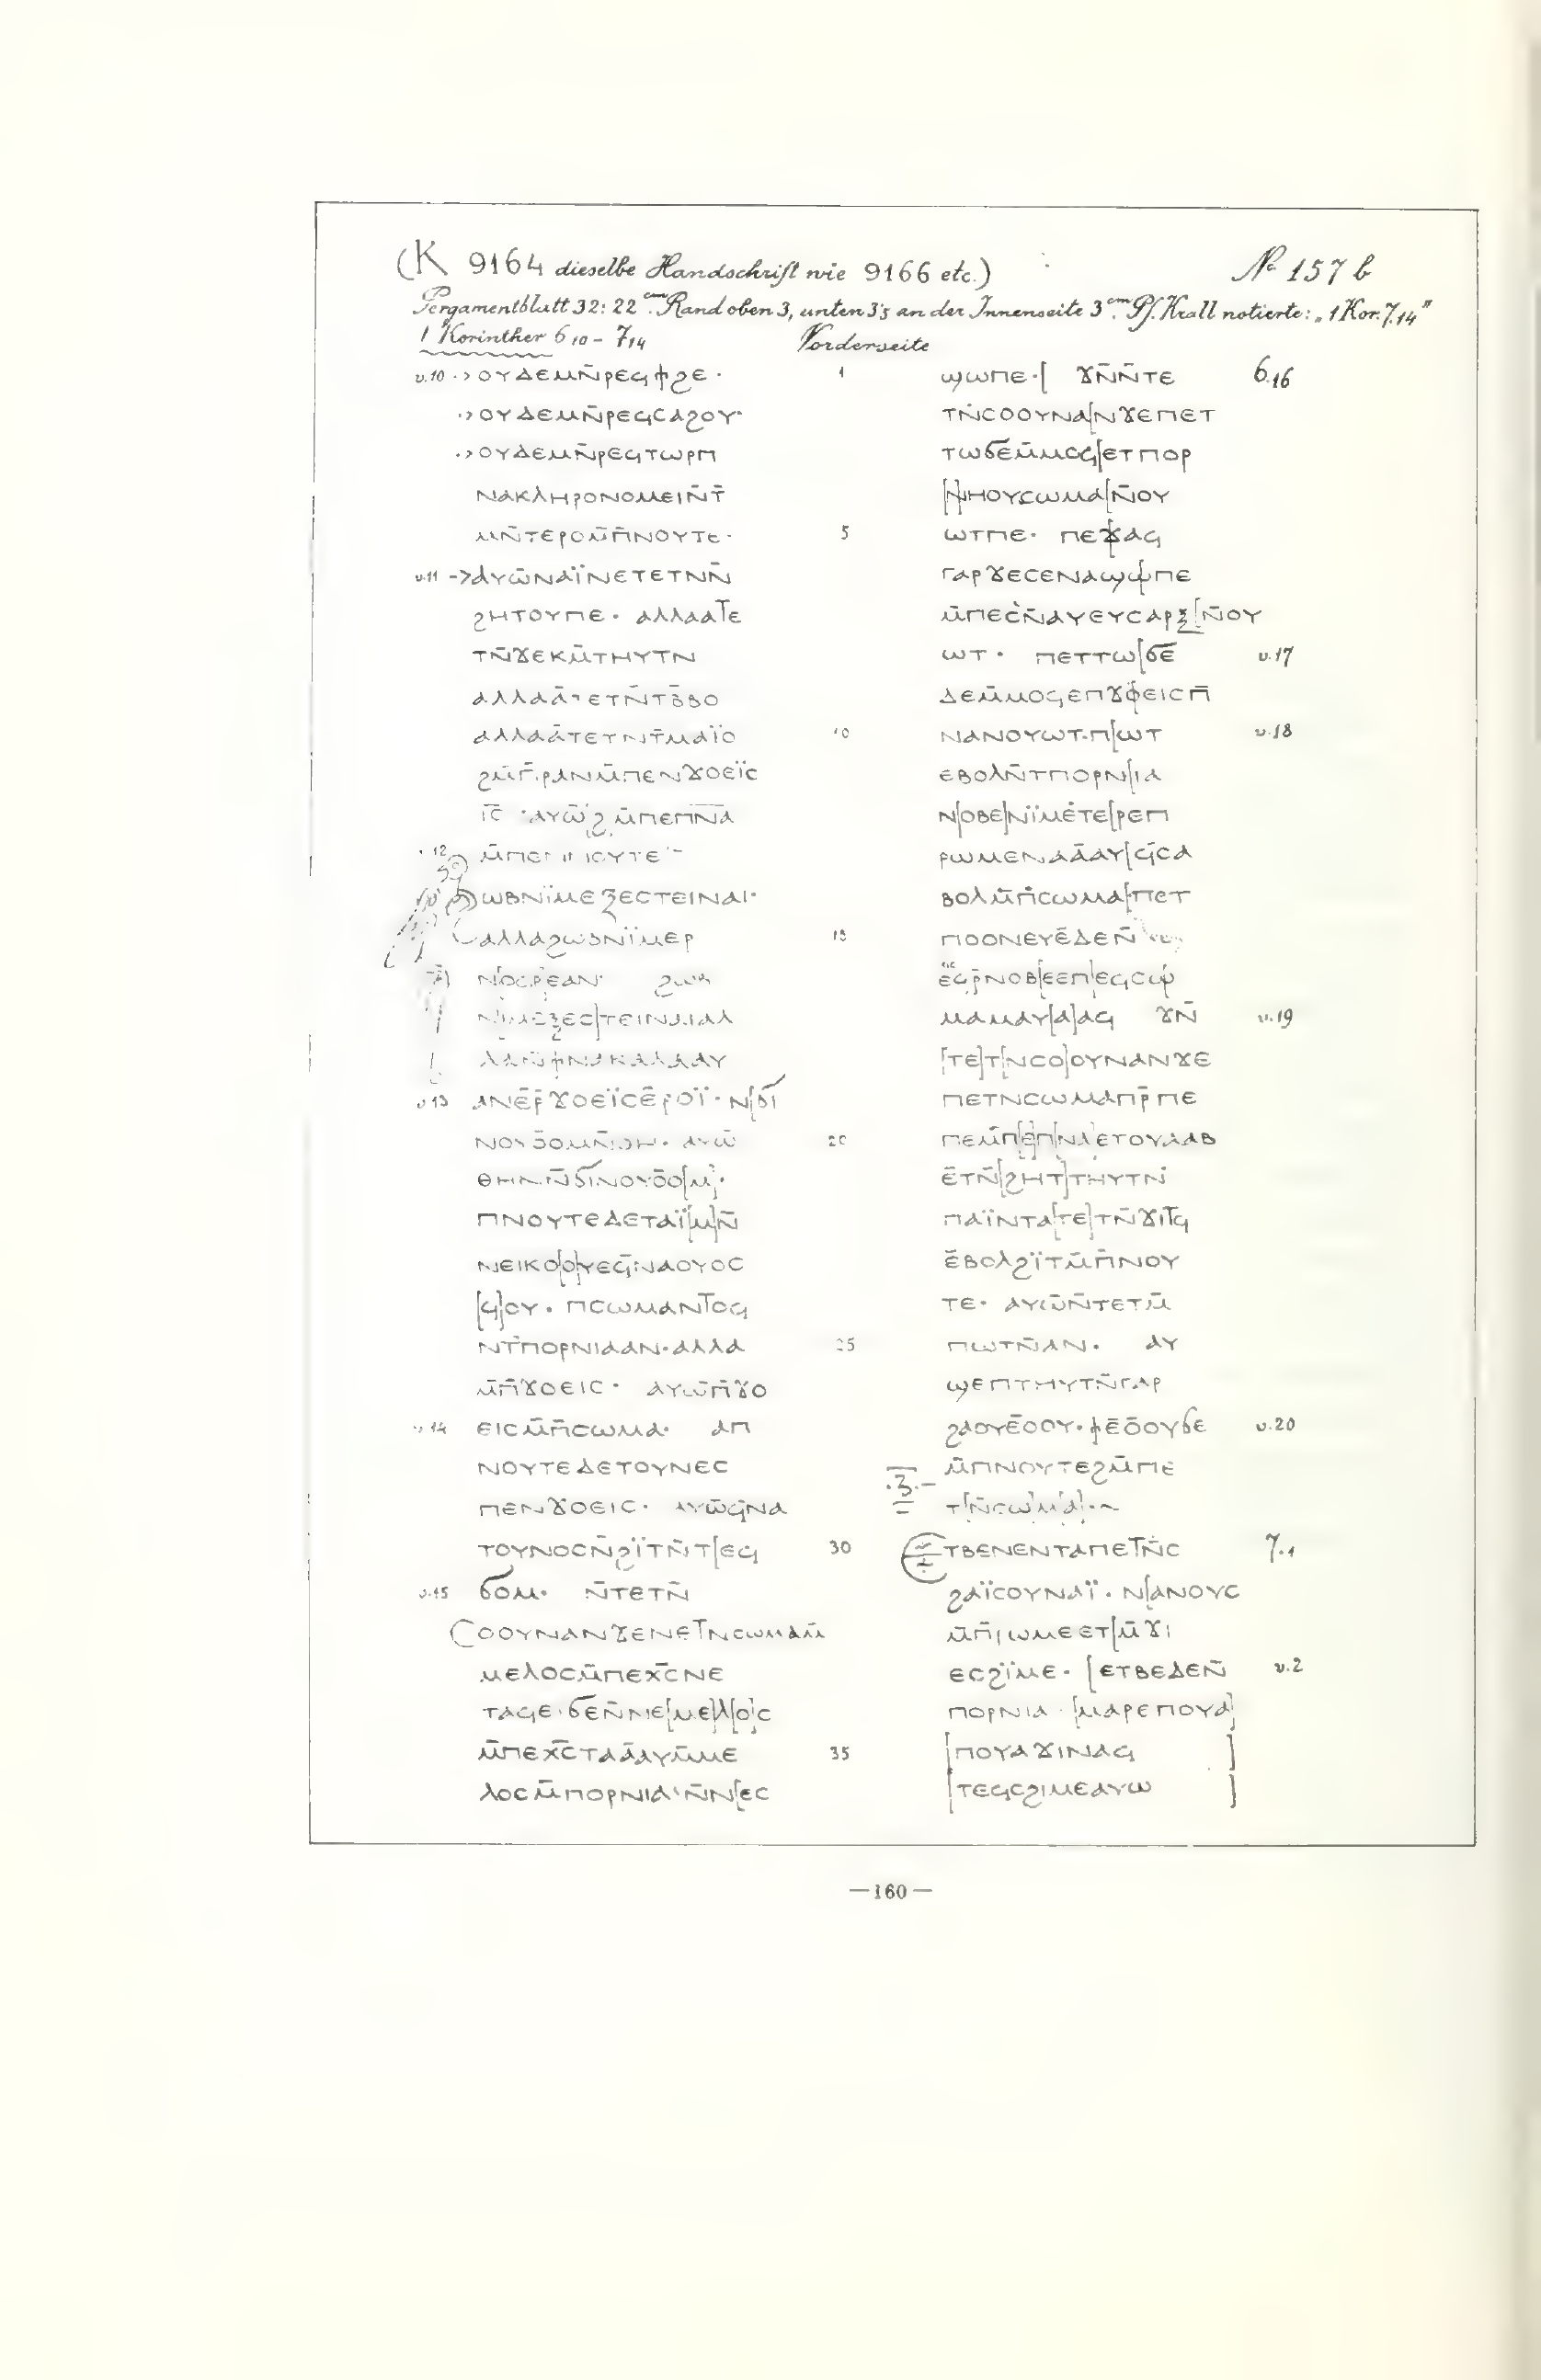 (K 9164 dieselbe Handschrift wie 9166 etc.) № 157 b
Pergamentblatt 32: 22 cm. Rand oben 3, unten 3'5 an der Innenseite 3 cm. Pf. Krall notierte: „1 Kor. 7.14"
1 Korinther 6 10 – 7 14 Vorderseite
v.10 ·> ⲟⲩⲇⲉⲙⲛ̄ⲣⲉϥϯϩⲉ · 1
·> ⲟⲩⲇⲉⲙⲛ̄ⲣⲉϥⲥⲁϩⲟⲩ·
·> ⲟⲩⲇⲉⲙⲛ̄ⲣⲉϥⲧⲱⲣⲡ
ⲛⲁⲕⲗⲏⲣⲟⲛⲟⲙⲉⲓⲛ̄ⲧ̄
ⲙⲛ̄ⲧⲉⲣⲟⲙ̄ⲡ̄ⲛⲟⲩⲧⲉ· 5
v.11 -> ⲁⲩⲱ̄ⲛⲁⲓ̈ⲛⲉⲧⲉⲧⲛⲛ̄
ϩⲏⲧⲟⲩⲡⲉ· ⲁⲗⲗⲁⲁⲧⲉ
ⲧⲛ̄ϫⲉⲕⲙ̄ⲧⲏⲩⲧⲛ
ⲁⲗⲗⲁⲁ̄ⲧⲉⲧⲛ̄ⲧⲃ̄ⲃⲟ
ⲁⲗⲗⲁⲁ̄ⲧⲉⲧⲛⲧ̄ⲙⲁⲓ̈ⲟ 10
ϩⲙ̄ⲡ̄ⲣⲁⲛⲙ̄ⲡⲉⲛϫⲟⲉⲓ̈ⲥ
ⲓ̄ⲥ̄ ·ⲁⲩⲱ̄ϩⲙ̄ⲡⲉⲡⲛ̄ⲁ̄
v.12 ⲙ̄ⲡⲉⲛⲛⲟⲩⲧⲉ
ϩⲱⲃⲛⲓ̈ⲙⲉⲝⲉⲥⲧⲉⲓⲛⲁⲓ·
ⲁⲗⲗⲁϩⲱⲃⲛⲓ̈ⲙⲉⲣ 15
ⲛⲟϥⲣⲉⲁⲛ· ϩⲱⲃ
ⲛⲓⲙⲉⲝⲉⲥⲧⲉⲓⲛⲁⲓⲁⲗ
v.13 ⲁⲛⲉ̄ⲣ̄ϫⲟⲉⲓ̈ⲥⲉ̄ⲣⲟⲓ̈· ⲛ[ϭⲓ
20
ⲑⲏⲛ̄ⲛ̄ϭⲓⲛⲟⲩⲟ̄ⲟ[ⲙ]·
ⲡⲛⲟⲩⲧⲉⲇⲉⲧⲁⲓ̈[ⲙ]ⲛ̄
ⲛⲉⲓⲕⲟ[ⲟ]ⲩⲉϥ̄ⲛⲁⲟⲩⲟⲥ
[ϥ]ⲟⲩ· ⲡⲥⲱⲙⲁⲛⲧⲟϥ
ⲛⲧ̄ⲡⲟⲣⲛⲓⲁⲁⲛ·ⲁⲗⲗⲁ 25
ⲙ̄ⲡ̄ϫⲟⲉⲓⲥ· ⲁⲩⲱⲡ̄ϫⲟ
v.14 ⲉⲓⲥⲙ̄ⲡ̄ⲥⲱⲙⲁ· ⲁⲡ
ⲛⲟⲩⲧⲉⲇⲉⲧⲟⲩⲛⲉⲥ
ⲡⲉⲛϫⲟⲉⲓⲥ· ⲁⲩⲱ̄ϥ̄ⲛⲁ
ⲧⲟⲩⲛⲟⲥⲛ̄ϩⲓ̈ⲧⲛ̄ⲧ[ⲉϥ 30
v.15 ϭⲟⲙ· ⲛ̄ⲧⲉⲧⲛ̄
ⲥⲟⲟⲩⲛⲁⲛϫⲉⲛⲉⲧⲛⲥⲱⲙⲁⲙ̄
ⲙⲉⲗⲟⲥⲙ̄ⲡⲉⲭ̄ⲥ̄ⲛⲉ
ⲧⲁϥⲉ·ϭⲉⲛ̄ⲙⲉ[ⲙⲉ]ⲗ[ⲟ]ⲥ
ⲙ̄ⲡⲉⲭ̄ⲥ̄ⲧⲁⲁ̄ⲁⲩⲙ̄ⲙⲉ 35
ⲗⲟⲥⲙ̄ⲡⲟⲣⲛⲓⲁ·ⲛ̄ⲛ[ⲉⲥ
ϣⲱⲡⲉ·[ ϫⲛ̄ⲛ̄ⲧⲉ 6.16
ⲧⲛ̄ⲥⲟⲟⲩⲛⲁ[ⲛϫⲉⲡⲉⲧ
ⲧⲱϭⲉⲙ̄ⲙⲟϥ[ⲉⲧⲡⲟⲣ
[ⲛ]ⲏⲟⲩⲥⲱⲙⲁ[ⲛ̄ⲟⲩ
ⲱⲧⲡⲉ· ⲡⲉϫⲁϥ
ⲅⲁⲣϫⲉⲥⲉⲛⲁϣⲱⲡⲉ
ⲙ̄ⲡⲉⲥⲛ̄ⲁⲩⲉⲩⲥⲁⲣⲝ[ⲛ̄ⲟⲩ
ⲱⲧ· ⲡⲉⲧⲧⲱ[ϭⲉ v.17
ⲇⲉⲙ̄ⲙⲟϥⲉⲡϫⲟⲉⲓⲥⲡ̄
ⲛⲁⲛⲟⲩⲱⲧ·ⲡ[ⲱⲧ v.18
ⲉⲃⲟⲗⲛ̄ⲧⲡⲟⲣⲛ[ⲓⲁ
ⲛ[ⲟⲃⲉ]ⲛⲓ̈ⲙⲉ̇ⲧⲉ[ⲣⲉⲡ
ⲣⲱⲙⲉⲛⲁⲁ̄ⲁⲩ[ϥ̄ⲥⲁ
ⲃⲟⲗⲙ̄ⲡ̄ⲥⲱⲙⲁ[ⲡⲉⲧ
ⲡⲟⲟⲛⲉⲩⲉ̄ⲇⲉⲛ̄
ⲉϥⲣ̄ⲛⲟⲃ[ⲉⲉⲡ]ⲉϥⲥⲱ
ⲙⲁⲙⲁⲩ[ⲁ]ⲁϥ ϫⲛ̄ v.19
[ⲧⲉ]ⲧ[ⲛⲥⲟ]ⲟⲩⲛⲁⲛϫⲉ
ⲡⲉⲧⲛⲥⲱⲙⲁⲡⲣ̄ⲡⲉ
ⲡⲉⲙ̄ⲡ[ⲉ]ⲡ[ⲛⲁ]ⲉⲧⲟⲩⲁⲁⲃ
ⲉ̄ⲧⲛ̄[ϩⲏⲧ]ⲧⲏⲩⲧⲛ
ⲡⲁⲓ̈ⲛⲧⲁ[ⲧⲉ]ⲧⲛ̄ϫⲓⲧϥ
ⲉ̄ⲃⲟⲗϩⲓ̈ⲧⲙ̄ⲡ̄ⲛⲟⲩ
ⲧⲉ· ⲁⲩⲱ̄ⲛ̄ⲧⲉⲧⲙ̄
ⲡⲱⲧⲛ̄ⲁⲛ· ⲁⲩ
ϣⲉⲡⲧⲏⲩⲧⲛ̄ⲅⲁⲣ
ϩⲁⲟⲩⲉ̄ⲟⲟⲩ·ϯⲉ̄ⲟ̄ⲟⲩϭⲉ v.20
ⲙ̄ⲡⲛⲟⲩⲧⲉϩⲙ̄ⲡⲉ
·ⲍ·– ⲧ[ⲛ̄ⲥⲱⲙⲁ]·~
ⲉⲧⲃⲉⲛⲉⲛⲧⲁⲡⲉⲧⲛ̄ⲥ 7.1
ϩⲁⲓ̈ⲥⲟⲩⲛⲁⲓ̈· ⲛ[ⲁⲛⲟⲩⲥ
ⲙ̄ⲡ̄ⲣⲱⲙⲉⲉⲧ[ⲙ̄ϫⲓ
ⲉⲥϩⲓ̈ⲙⲉ· [ⲉⲧⲃⲉⲇⲉⲛ̄ v.2
ⲡⲟⲣⲛⲓⲁ· [ⲙⲁⲣⲉⲡⲟⲩⲁ]
[ⲡⲟⲩⲁϫⲓⲛⲁϥ ]
[ⲧⲉϥⲥϩⲓⲙⲉⲁⲩⲱ ]
—160—